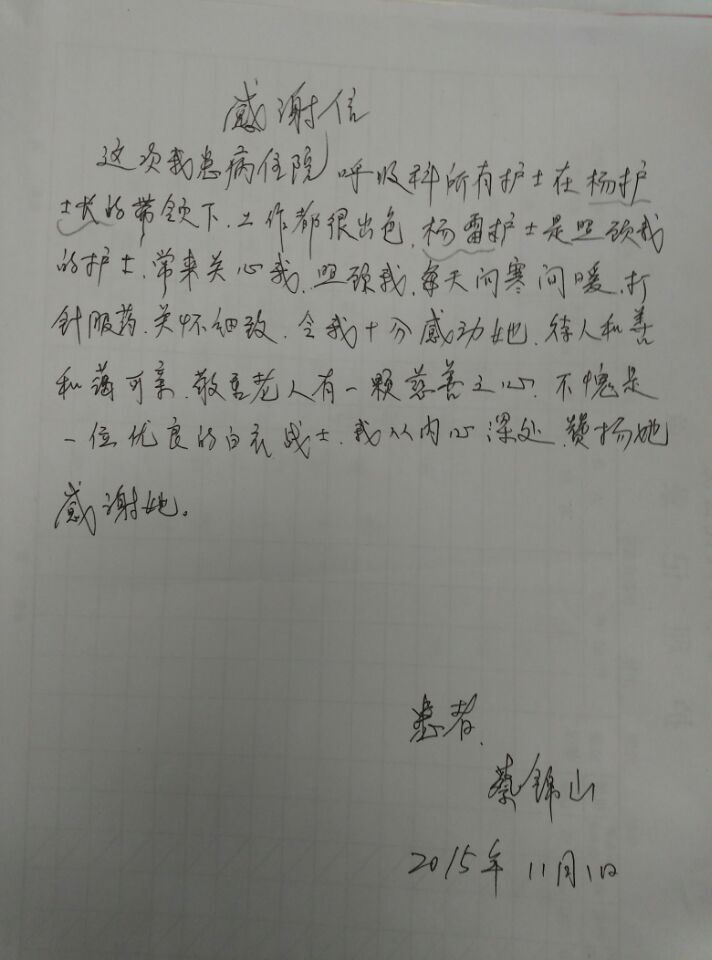 感谢信
这次我患病住院 呼吸科所有护士在杨护
士长的带领下.工作都很出色.杨雷护士是照顾我
的护士.常来关心我.照顾我.每天问寒问暖.打
针服药.关怀细致.令我十分感动她.待人和善
和蔼可亲.敬重老人有一颗慈善之心.不愧是
一位优良的白衣战士.我从内心深处.赞扬她
感谢她。
患者.
蔡锦山
2015年11月1日